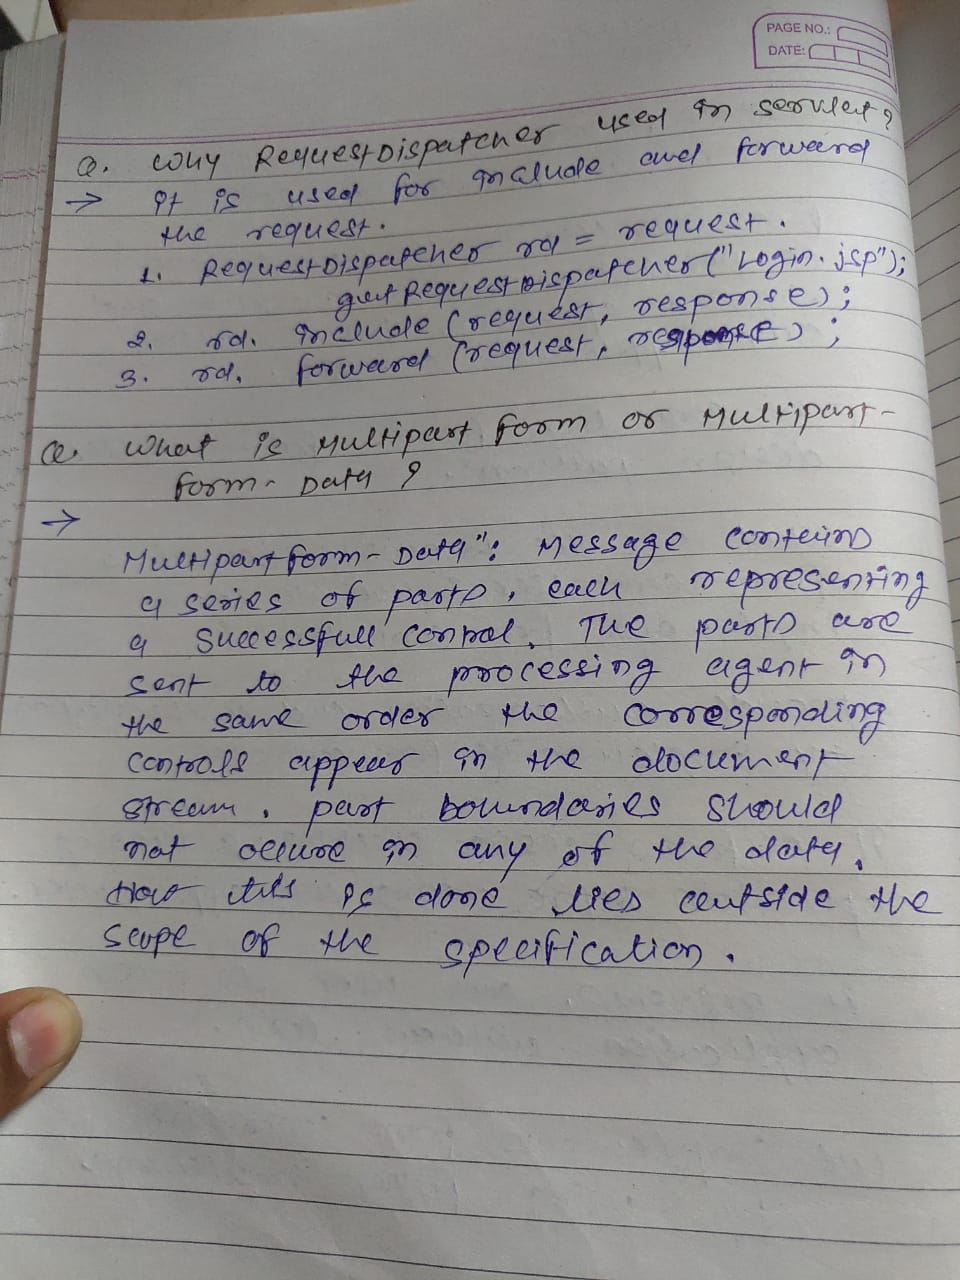 PAGE NO.:
DATE:
Q. Why RequestDispatcher used in servlet?
→ It is used for include and forward
the request.
1. RequestDispatcher rd = request.
getRequestDispatcher("Login.jsp");
2. rd. include (request, response);
3. rd. forward (request, response);
Q. What is Multipart form or Multipart-
form-Data ?
→
Multipart form-Data": Message contains
a series of parts, each representing
a successfull control. The parts are
sent to the processing agent in
the same order the corresponding
controls appear in the document
stream. part boundaries should
not occure in any of the data.
How this is done lies outside the
scope of the specification.